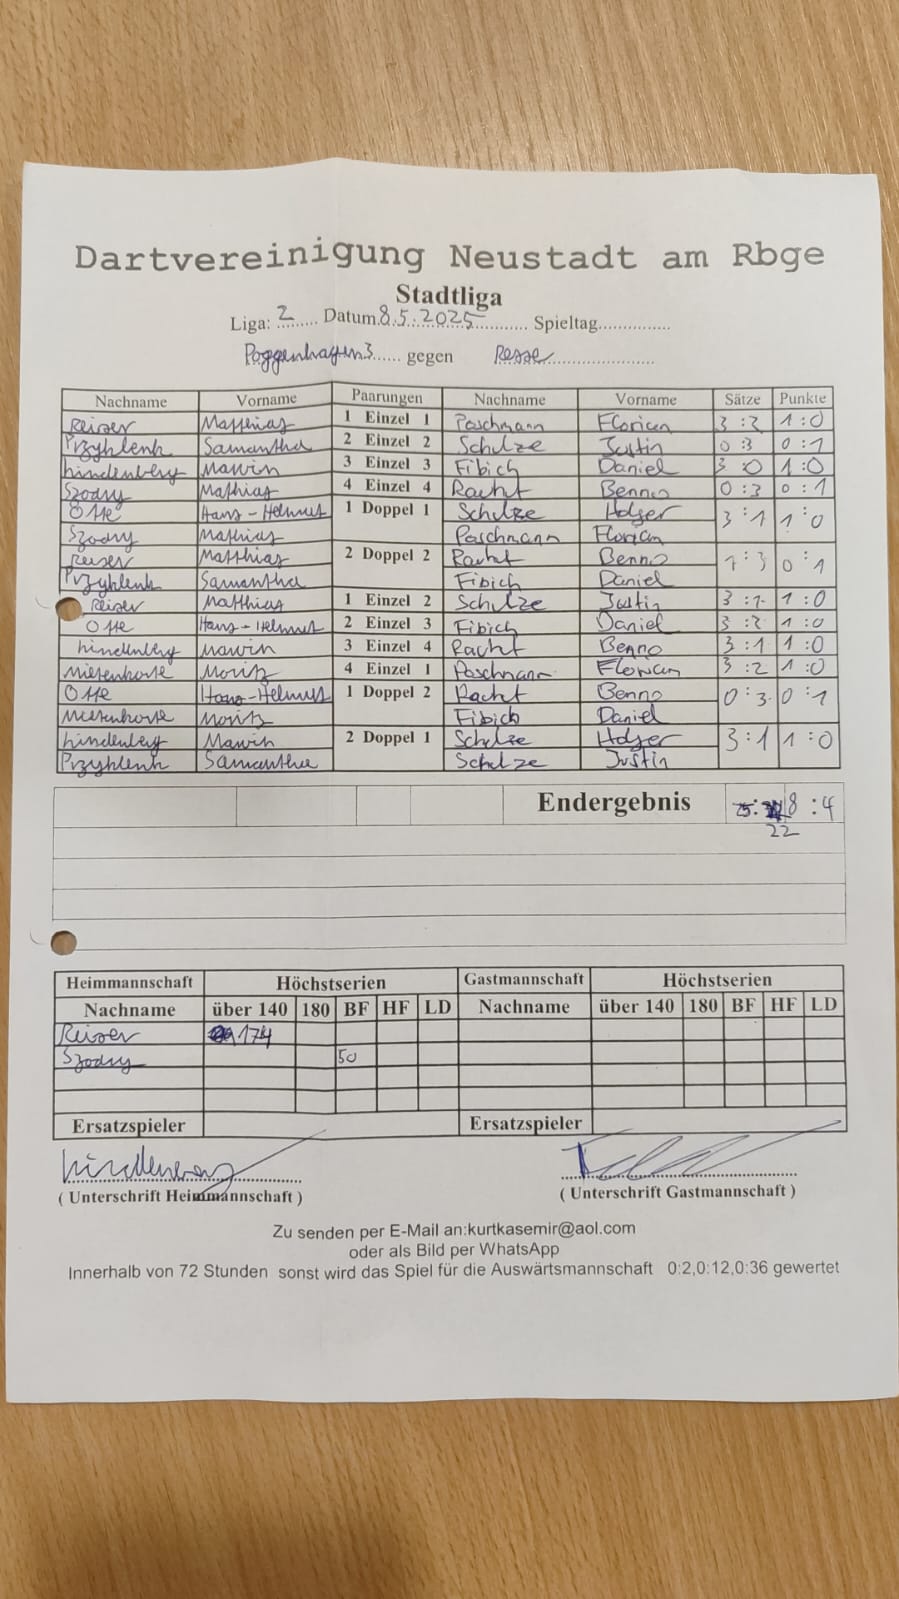 Dartvereinigung Neustadt am Rbge
Stadtliga
Liga: 2 Datum 8.5.2025 Spieltag
Poggenhagen 3 gegen Resse
Nachname Vorname Paarungen Nachname Vorname Sätze Punkte
Reiser Matthias 1 Einzel 1 Paschmann Florian 3:2 1:0
Przyhlenk Samantha 2 Einzel 2 Schulze Justin 0:3 0:1
Lindenberg Marvin 3 Einzel 3 Fibich Daniel 3:0 1:0
Szodry Mathias 4 Einzel 4 Racht Benno 0:3 0:1
Otte Hans-Helmut 1 Doppel 1 Schulze Holger 3:1 1:0
Szodry Mathias Paschmann Florian
Reiser Matthias 2 Doppel 2 Racht Benno 1:3 0:1
Przyhlenk Samantha Fibich Daniel
Reiser Matthias 1 Einzel 2 Schulze Justin 3:1 1:0
Otte Hans-Helmut 2 Einzel 3 Fibich Daniel 3:2 1:0
Lindenberg Marvin 3 Einzel 4 Racht Benno 3:1 1:0
Miesenhorte Moritz 4 Einzel 1 Paschmann Florian 3:2 1:0
Otte Hans-Helmut 1 Doppel 2 Racht Benno 0:3 0:1
Miesenhorte Moritz Fibich Daniel
Lindenberg Marvin 2 Doppel 1 Schulze Holger 3:1 1:0
Przyhlenk Samantha Schulze Justin
Endergebnis 25: 8:4
22
Heimmannschaft Höchstserien Gastmannschaft Höchstserien
Nachname über 140 180 BF HF LD Nachname über 140 180 BF HF LD
Reiser 174
Szodry 50
Ersatzspieler Ersatzspieler
Lindenberg
( Unterschrift Heimmannschaft ) ( Unterschrift Gastmannschaft )
Zu senden per E-Mail an:kurtkasemir@aol.com
oder als Bild per WhatsApp
Innerhalb von 72 Stunden sonst wird das Spiel für die Auswärtsmannschaft 0:2,0:12,0:36 gewertet